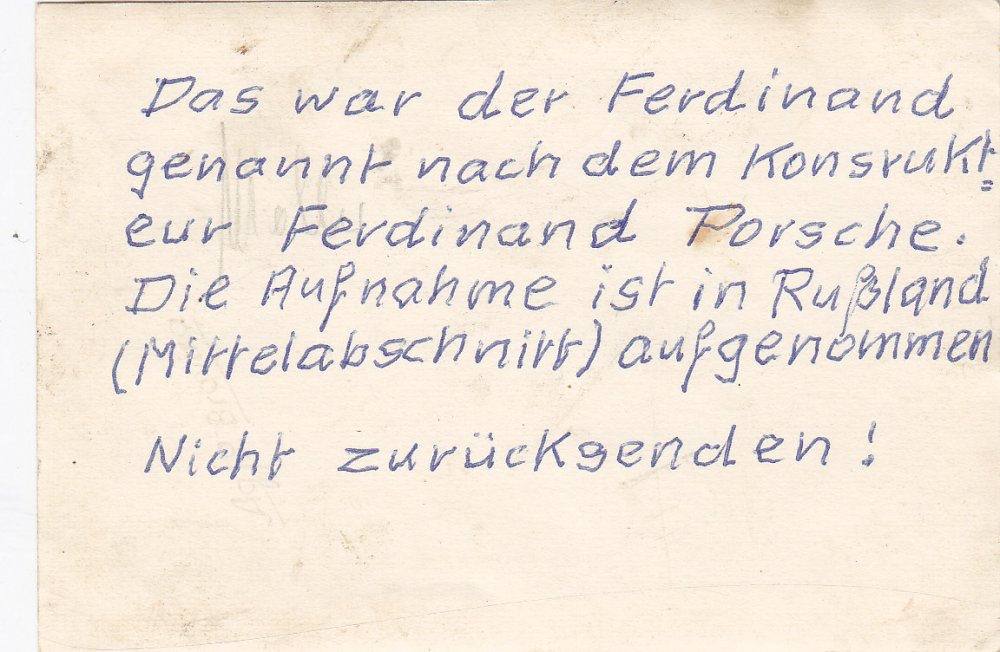 Das war der Ferdinand
genannt nach dem Konsrukt=
eur Ferdinand Porsche.
Die Aufnahme ist in Rußland
(Mittelabschnitt) aufgenommen
Nicht zurücksenden!